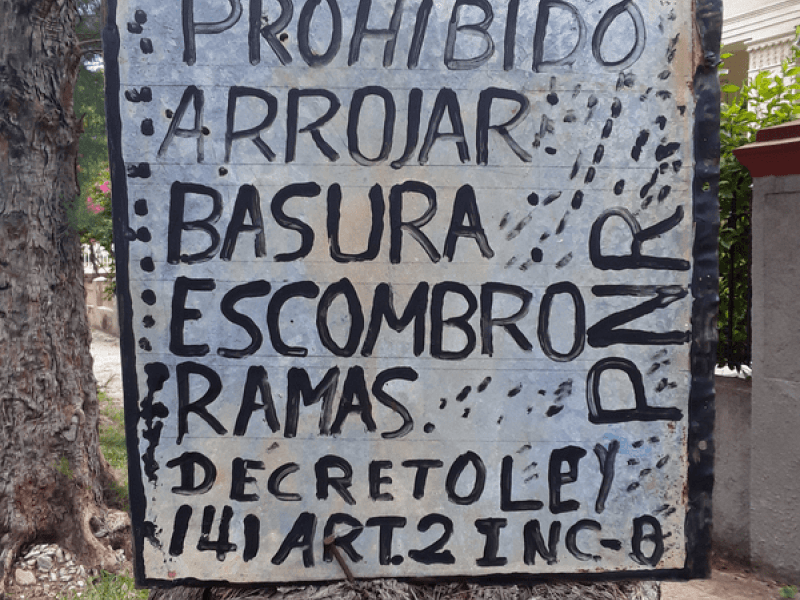 PROHIBIDO
ARROJAR
BASURA
ESCOMBRO
RAMAS.
DECRETO LEY
141 ART.2 INC-B
PNR